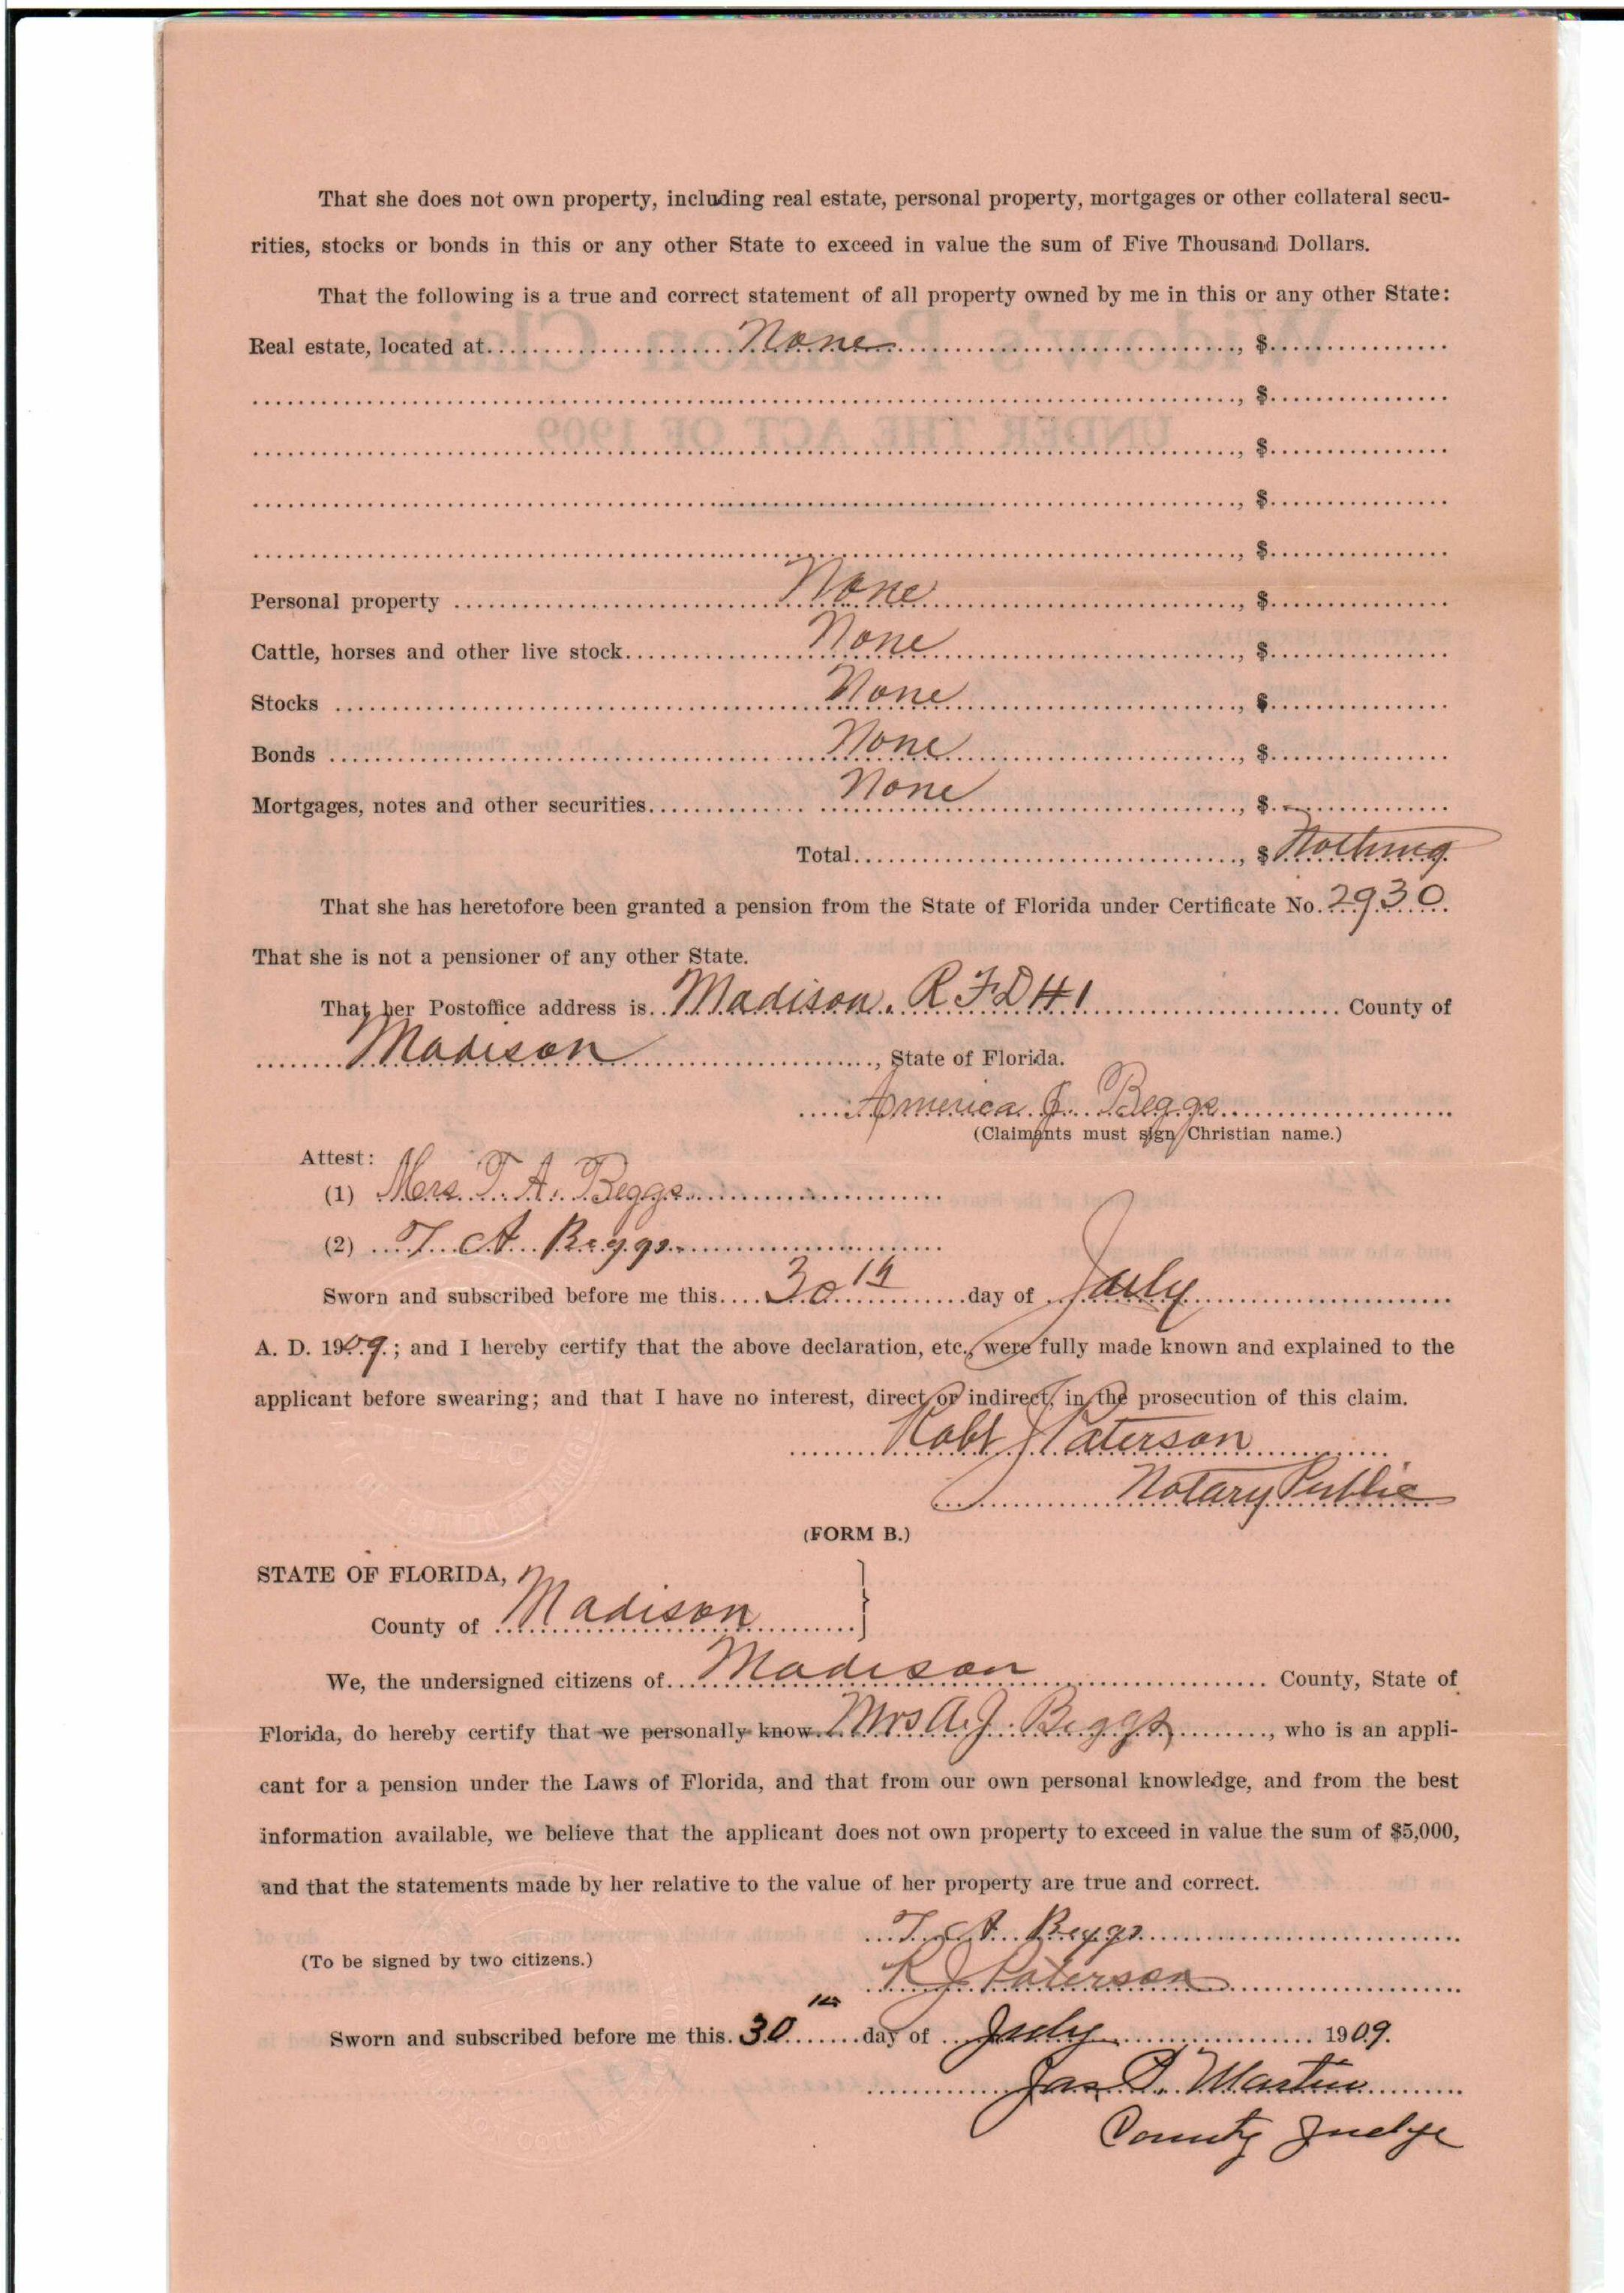 That she does not own property, including real estate, personal property, mortgages or other collateral secu-
rities, stocks or bonds in this or any other State to exceed in value the sum of Five Thousand Dollars.
That the following is a true and correct statement of all property owned by me in this or any other State:
Real estate, located at None , $
, $
, $
, $
, $
Personal property None , $
Cattle, horses and other live stock None , $
Stocks None , $
Bonds None , $
Mortgages, notes and other securities None , $
Total , $ Nothing
That she has heretofore been granted a pension from the State of Florida under Certificate No. 2930
That she is not a pensioner of any other State.
That her Postoffice address is Madison. R F D # 1 County of
Madison , State of Florida.
America J. Beggs
(Claimants must sign Christian name.)
Attest:
(1) Mrs. T. A. Beggs
(2) T. A. Beggs
Sworn and subscribed before me this 30th day of July
A. D. 1909; and I hereby certify that the above declaration, etc., were fully made known and explained to the
applicant before swearing; and that I have no interest, direct or indirect, in the prosecution of this claim.
Robt J Paterson
Notary Public
(FORM B.)
STATE OF FLORIDA,
County of Madison
We, the undersigned citizens of Madison County, State of
Florida, do hereby certify that we personally know Mrs A. J. Beggs , who is an appli-
cant for a pension under the Laws of Florida, and that from our own personal knowledge, and from the best
information available, we believe that the applicant does not own property to exceed in value the sum of $5,000,
and that the statements made by her relative to the value of her property are true and correct.
T. A. Beggs
(To be signed by two citizens.)
R J Paterson
Sworn and subscribed before me this 30th day of July 1909.
Jas. Martin
County Judge